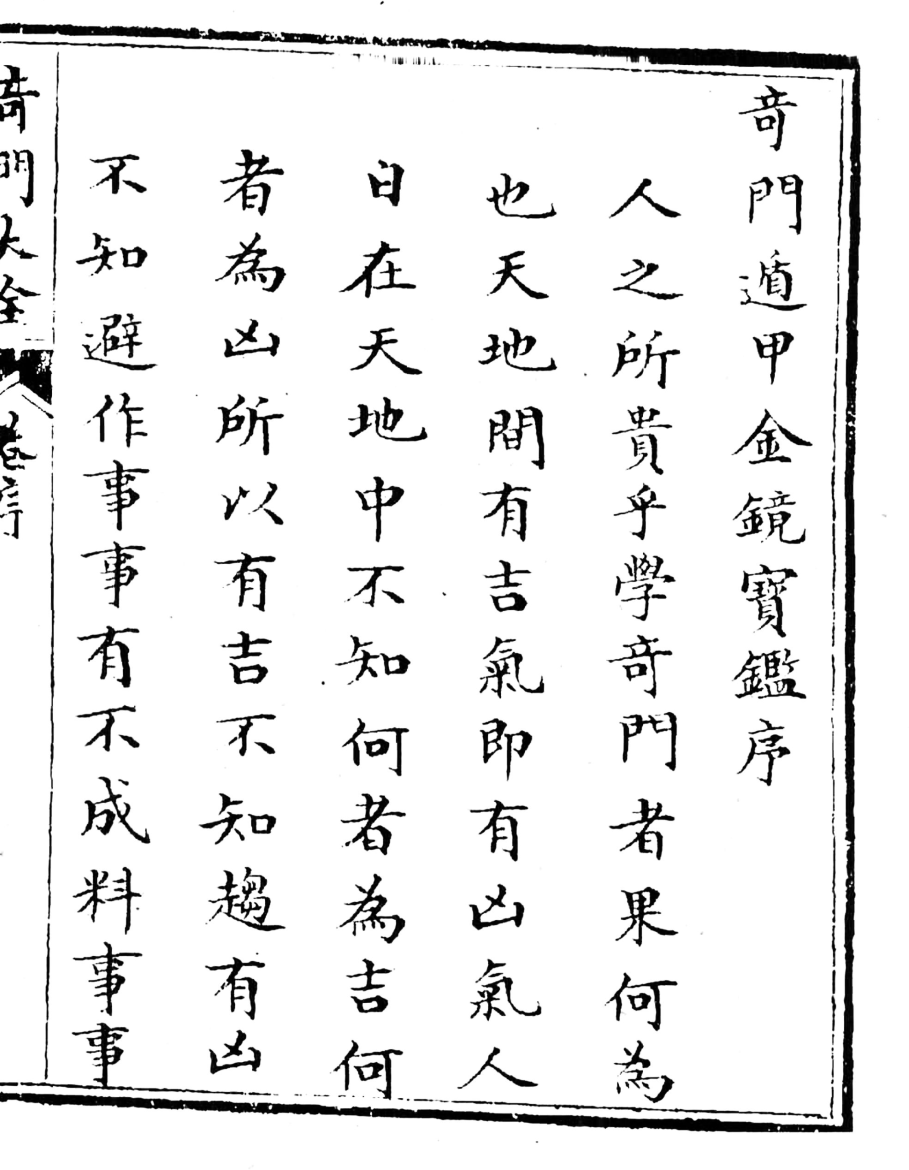 奇門遁甲金鏡寶鑑序
人之所貴乎學奇門者果何為
也天地間有吉氣即有凶氣人
日在天地中不知何者為吉何
者為凶所以有吉不知趨有凶
不知避作事事有不成料事事
奇門大全 卷序